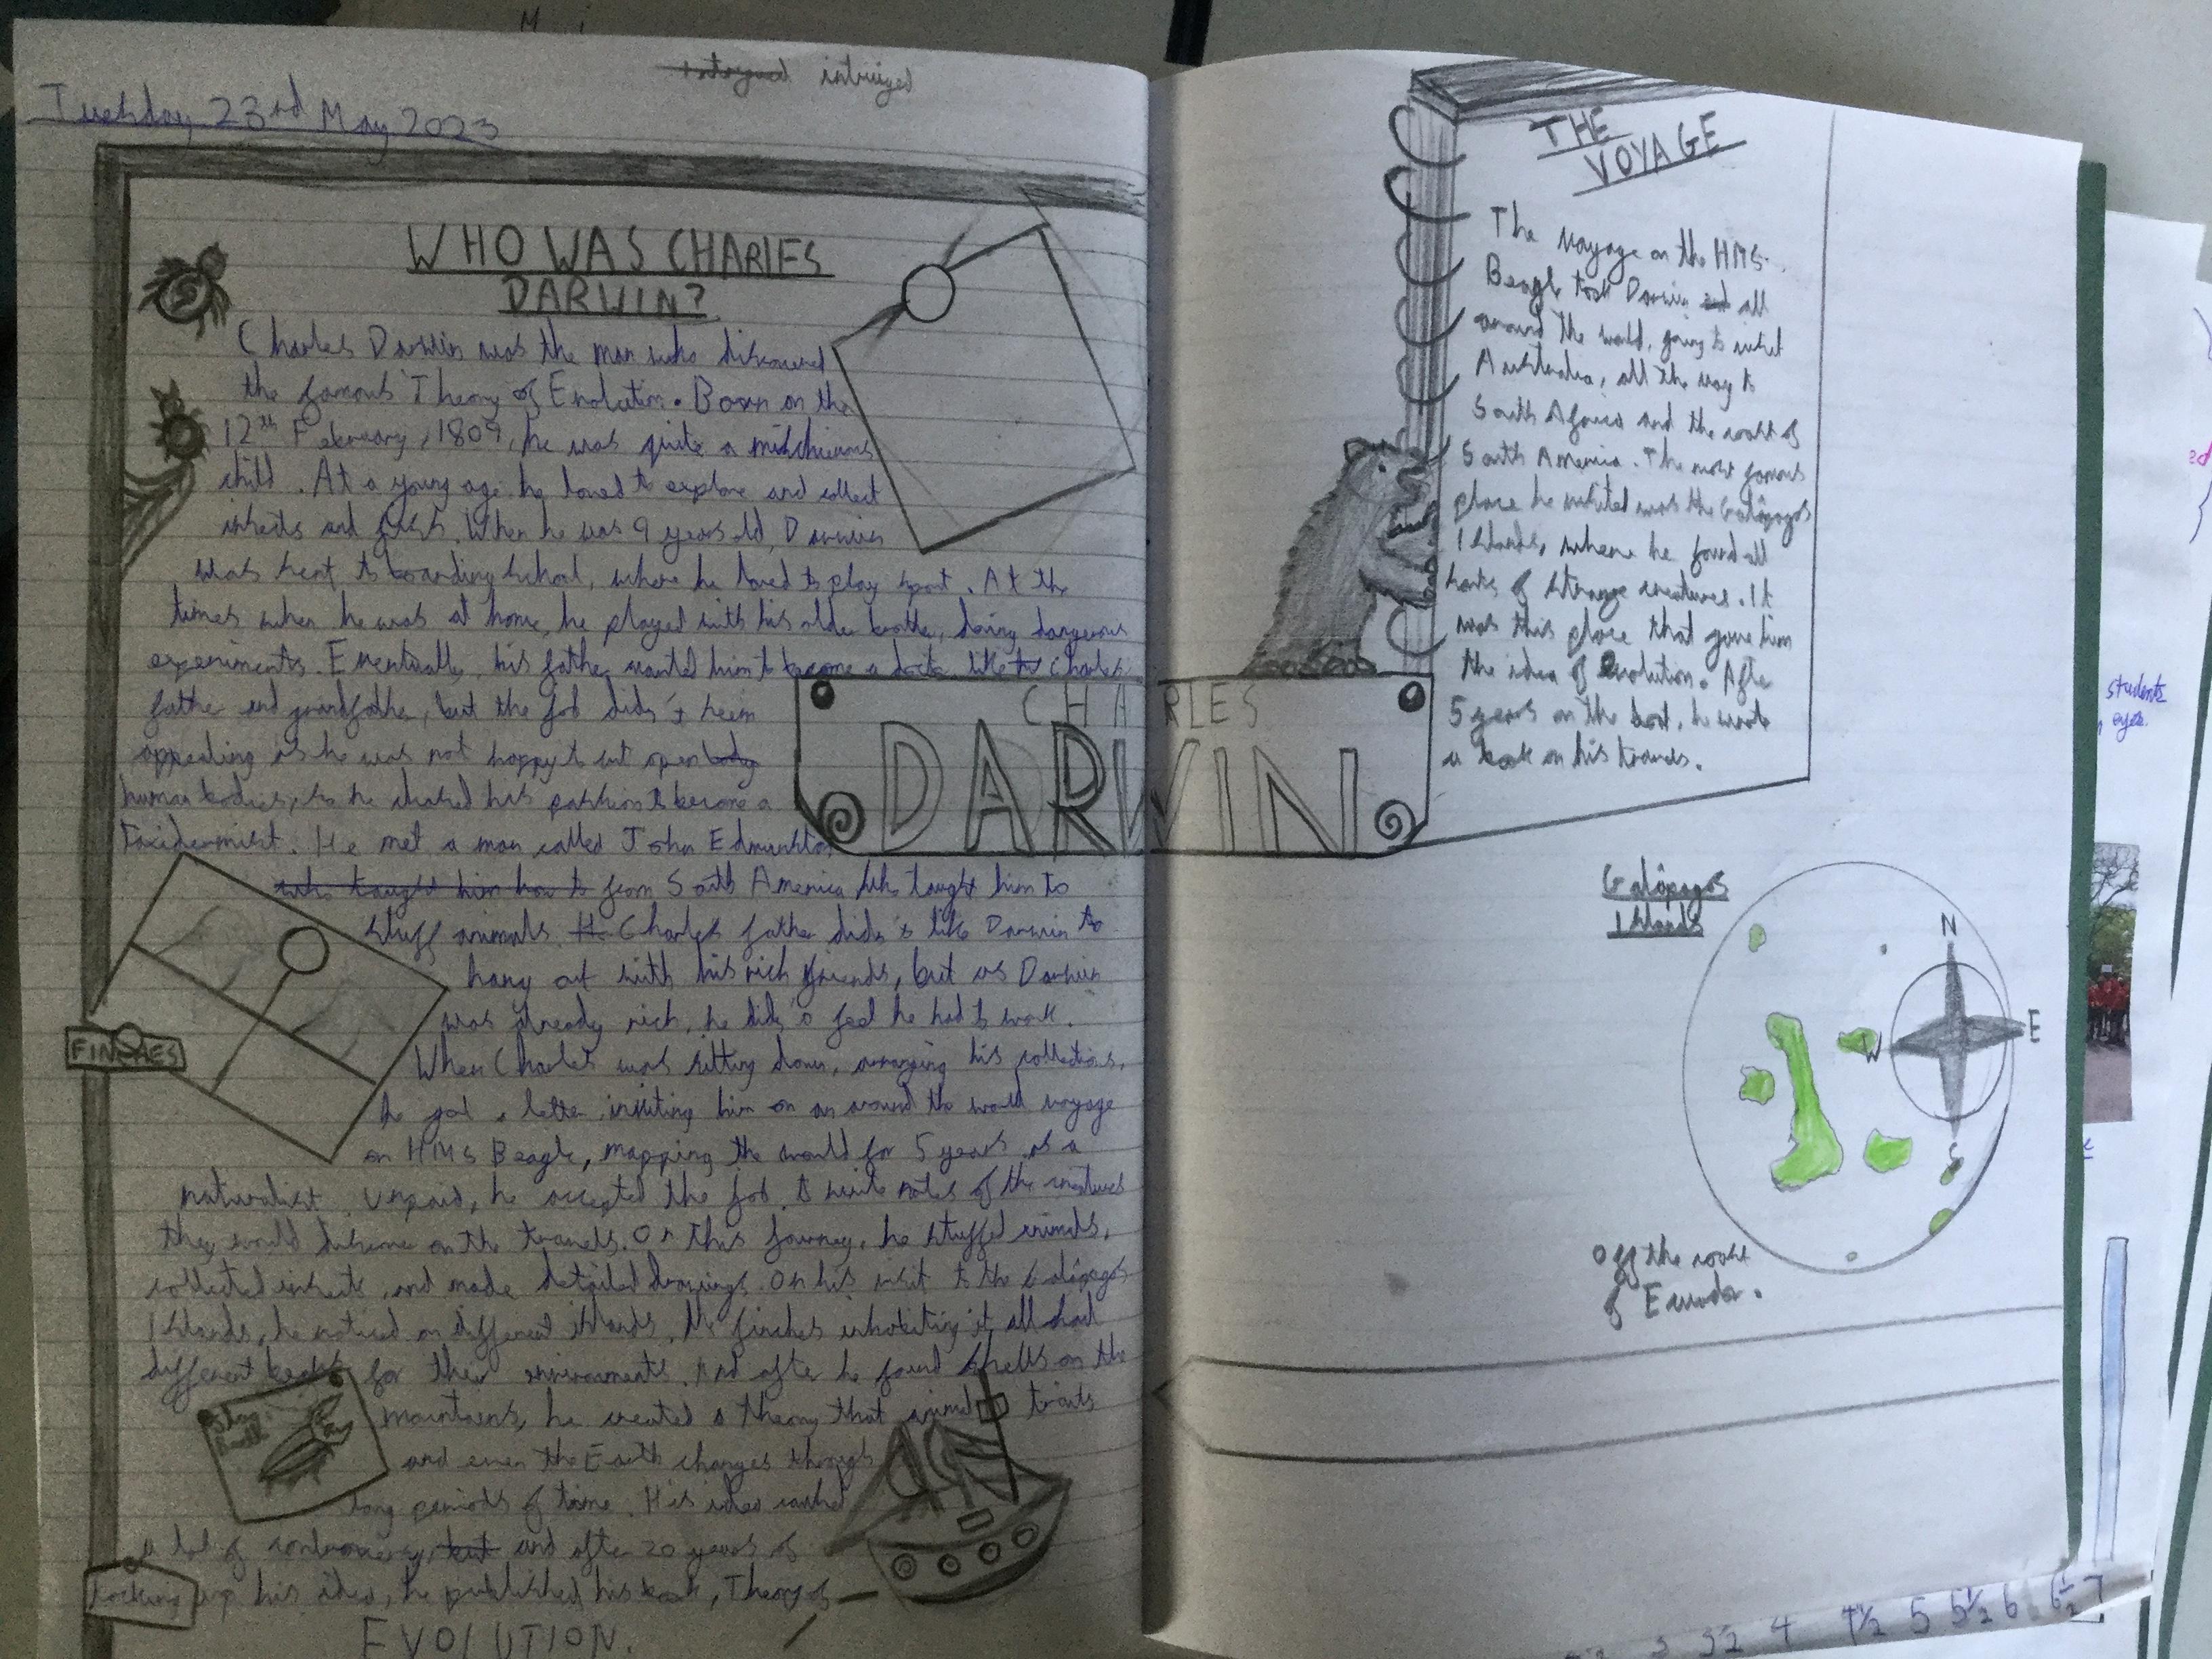 intruiged
Tuesday 23rd May 2023
WHO WAS CHARLES
DARWIN?
Charles Darwin was the man who discovered
the famous Theory of Evolution. Born on the
12th February, 1809, he was quite a mischievous
child. At a young age he loved to explore and collect
insects and When he was 9 years old, Darwin
was sent to boarding school, where he loved to play sport. At the
times when he was at home, he played with his older brother, doing dangerous
experiments. Eventually, his father wanted him to become a doctor like Charles
father and grandfather, but the job didn't seem
appealing as he was not happy to cut open body
human bodies, so he shared his passion to become a
Taxidermist. He met a man called John Edmunston
who taught him how to from South America who taught him to
stuff animals. Charles father didn't like Darwin to
hang out with his rich friends, but as Darwin
was already rich, he didn't feel he had to work.
When Charles was sitting down, arranging his collections,
he got a letter, inviting him on an around the world voyage
on HMS Beagle, mapping the world for 5 years as a
naturalist. Unpaid, he accepted the job to write notes of the creatures
they would on the travels. On this journey, he stuffed animals,
collected insects, and made detailed drawings. On his visit to the Galápagos
Islands, he noticed on different islands, the finches inhabiting it all had
different beaks for their environments. And after he found shells on the
mountains, he created a theory that animal traits
and even the Earth changes through
long periods of time. His idea caused
a lot of controversy, but and after 20 years of
locking up his idea, he published his book, Theory of
EVOLUTION.
FINCHES
Stag
CHARLES
DARWIN
THE
VOYAGE
The voyage on the HMS
Beagle took Darwin all
around the world, going to visit
Australia, all the way to
South Africa and the coast of
South America. The most famous
place he visited was the Galápagos
Islands, where he found all
sorts of strange creatures. It
was this place that gave him
the idea of evolution. After
5 years on the boat, he wrote
a book on his travels.
Galápagos
Islands
N
E
W
S
Off the coast
of Ecuador.
4 4½ 5 5½ 6 6½ 7
students
eyes.